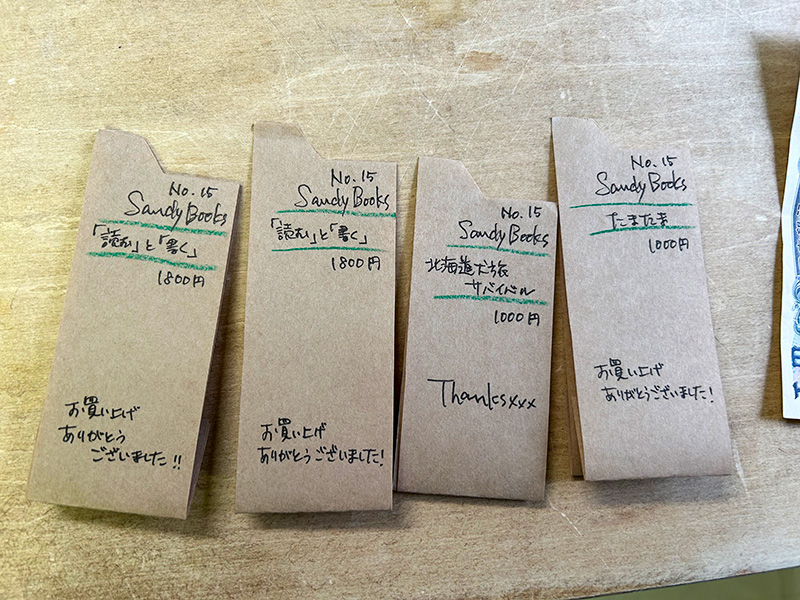 No. 15
Sandy Books
「読む」と「書く」
1800円
お買い上げ
ありがとう
ございました!!
No. 15
Sandy Books
「読む」と「書く」
1800円
お買い上げ
ありがとうございました!
No. 15
Sandy Books
北海道犬旅
サバイバル
1000円
Thanksxxx
No. 15
Sandy Books
たまたま
1000円
お買い上げ
ありがとうございました!